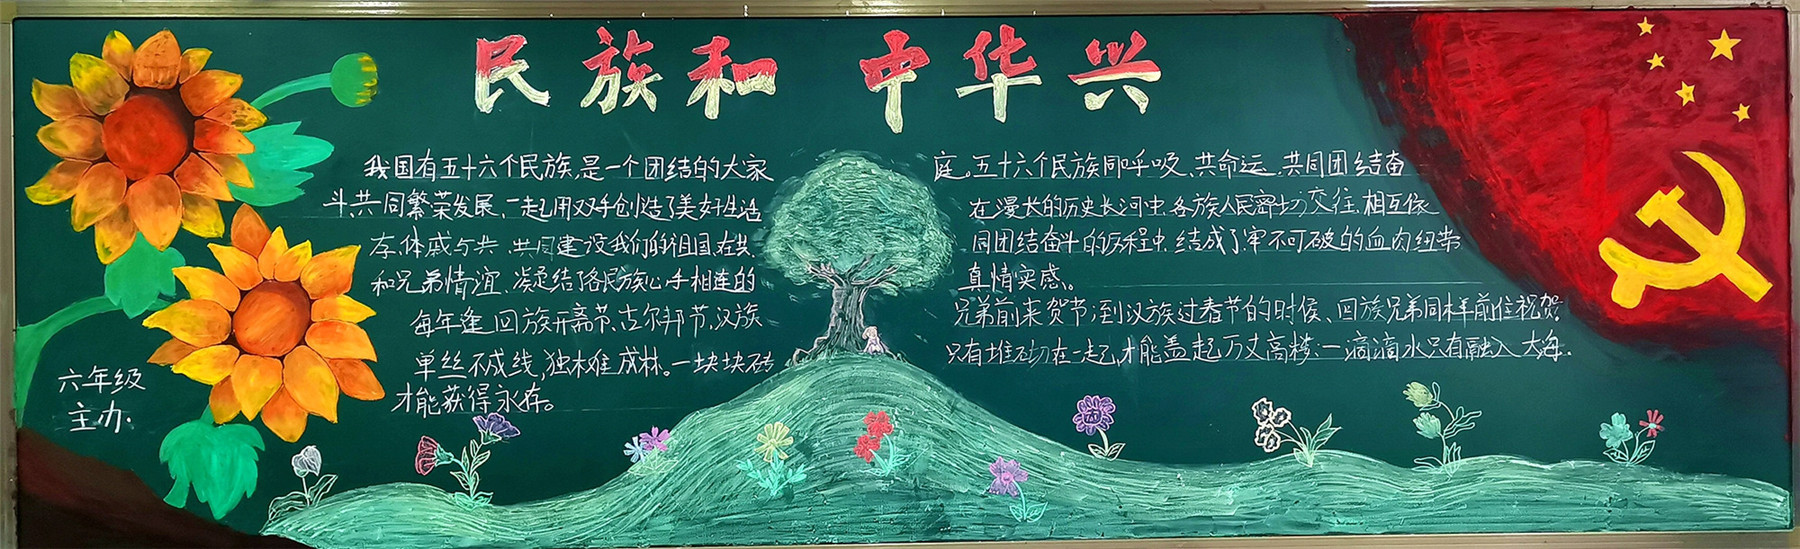 民族和 中华兴
我国有五十六个民族,是一个团结的大家庭。五十六个民族同呼吸、共命运、共同团结奋
斗,共同繁荣发展,一起用双手创造了美好生活 在漫长的历史长河中,各族人民密切交往,相互依
存,休戚与共,共同建设我们的祖国,在共同团结奋斗的历程中,结成了牢不可破的血肉纽带
和兄弟情谊、凝结了各民族心手相连的真情实感。
每年逢回族开斋节、古尔邦节,汉族兄弟前来贺节;到汉族过春节的时候、回族兄弟同样前往祝贺。
单丝不成线,独木难成林。一块块砖只有堆砌在一起,才能盖起万丈高楼;一滴滴水只有融入大海.
才能获得永存。
六年级
主办.